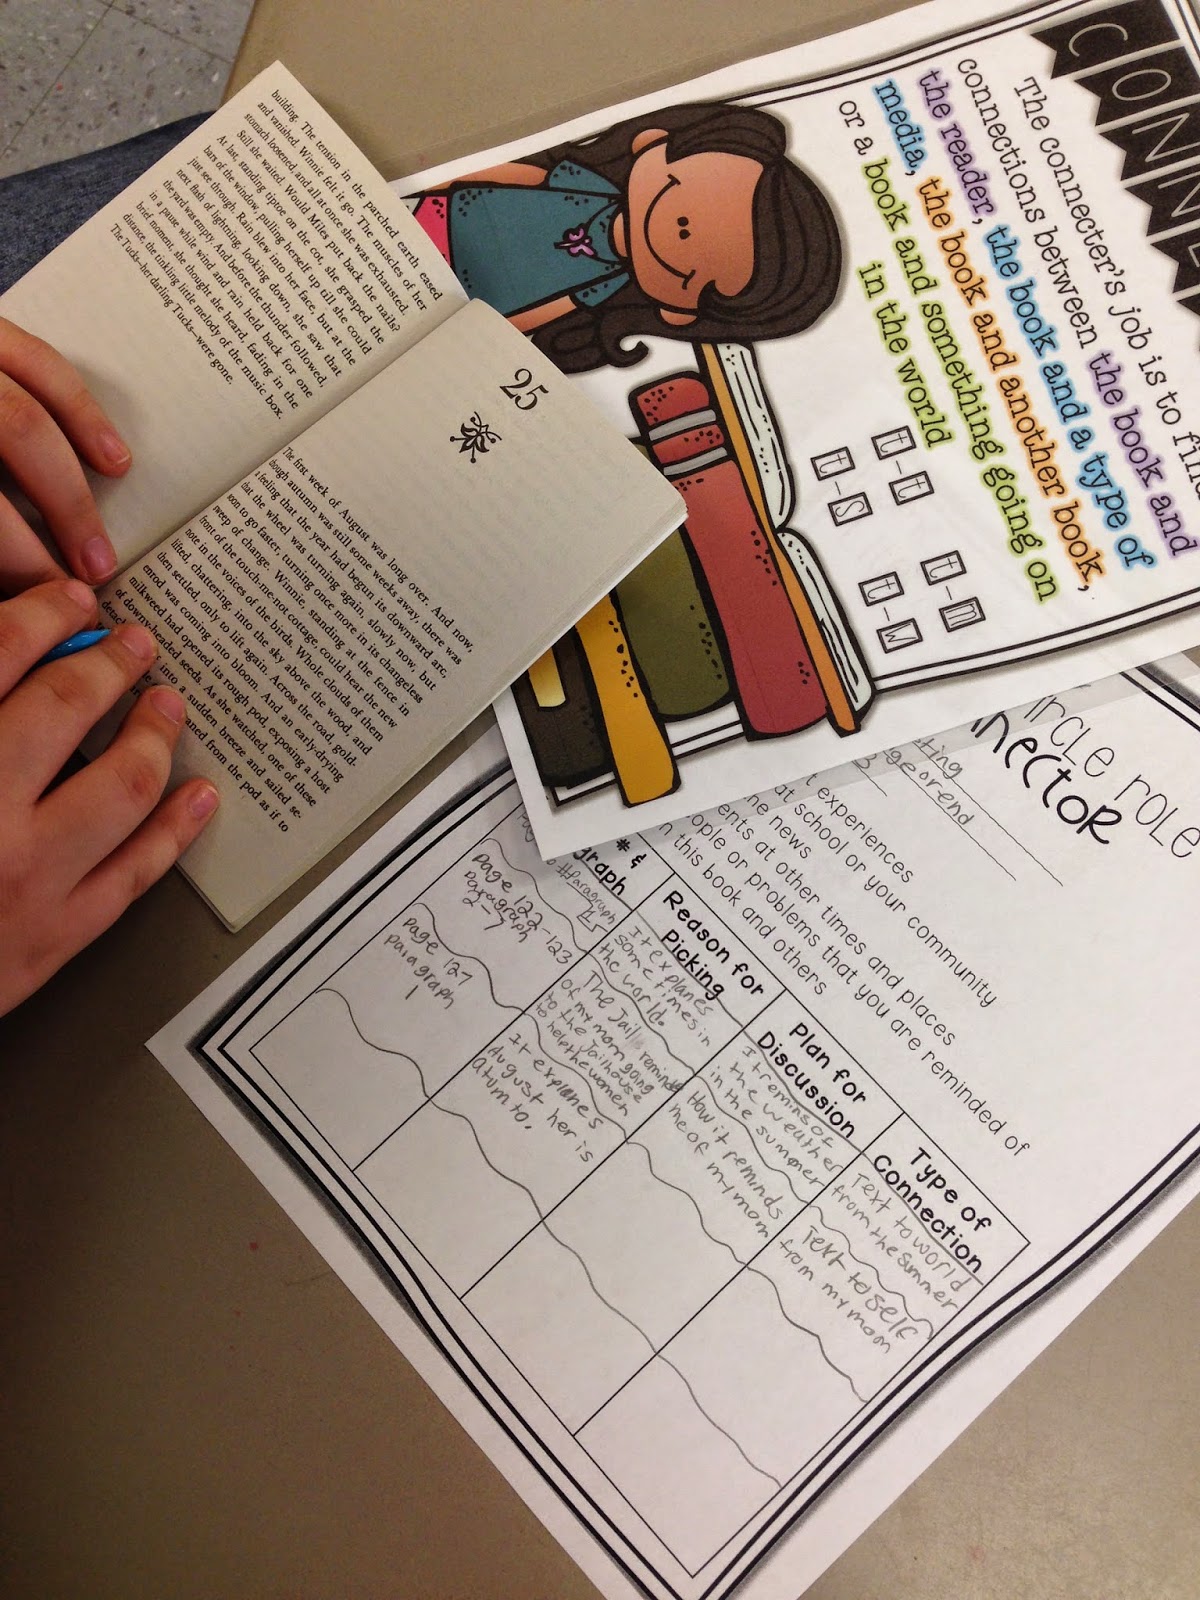 building. The tension in the parched earth eased
and vanished. Winnie felt it go. The muscles of her
stomach loosened, and all at once she was exhausted.
Still she waited. Would Miles put back the nails?
At last, standing tiptoe on the cot, she grasped the
bars of the window, pulling herself up till she could
just see through. Rain blew into her face, but at the
next flash of lightning, looking down, she saw that
the yard was empty. And before the thunder followed,
in a pause while wind and rain held back for one
brief moment, she thought she heard, fading in the
distance, the tinkling little melody of the music box.
The Tucks—her darling Tucks—were gone.
25
The first week of August was long over. And now,
though autumn was still some weeks away, there was
a feeling that the year had begun its downward arc,
that the wheel was turning again, slowly now, but
soon to go faster, turning once more in its changeless
sweep of change. Winnie, standing at the fence in
front of the touch-me-not cottage, could hear the new
note in the voices of the birds. Whole clouds of them
lifted, chattering, into the sky above the wood, and
then settled, only to lift again. Across the road, gold-
enrod was coming into bloom. And an early-drying
milkweed had opened its rough pod, exposing a host
of downy-headed seeds. As she watched, one of these
into a sudden breeze and sailed se-
aned from the pod as if to
CONNE
The connecter's job is to find
connections between the book and
the reader, the book and a type of
media, the book and another book,
or a book and something going on
in the world
t-t
t-m
t-s
t-w
ircle role
nnector
georend
experiences
at school or your community
ne news
ents at other times and places
ople or problems that you are reminded of
n this book and others
# &
graph
Reason for
Picking
Plan for
Discussion
Type of
Connection
#Paragraph
It explanes
some times in
the world.
It remins of
the weather
in the summer
Text to world
from the summer
page 122-123
paragraph
2-7
The Jail reminds
of my mom going
to the Jailhouse
to help the women
How it reminds
me of my mom
Text to self
from my mom
page 127
paragraph
1
It explanes
August her is
atum to.